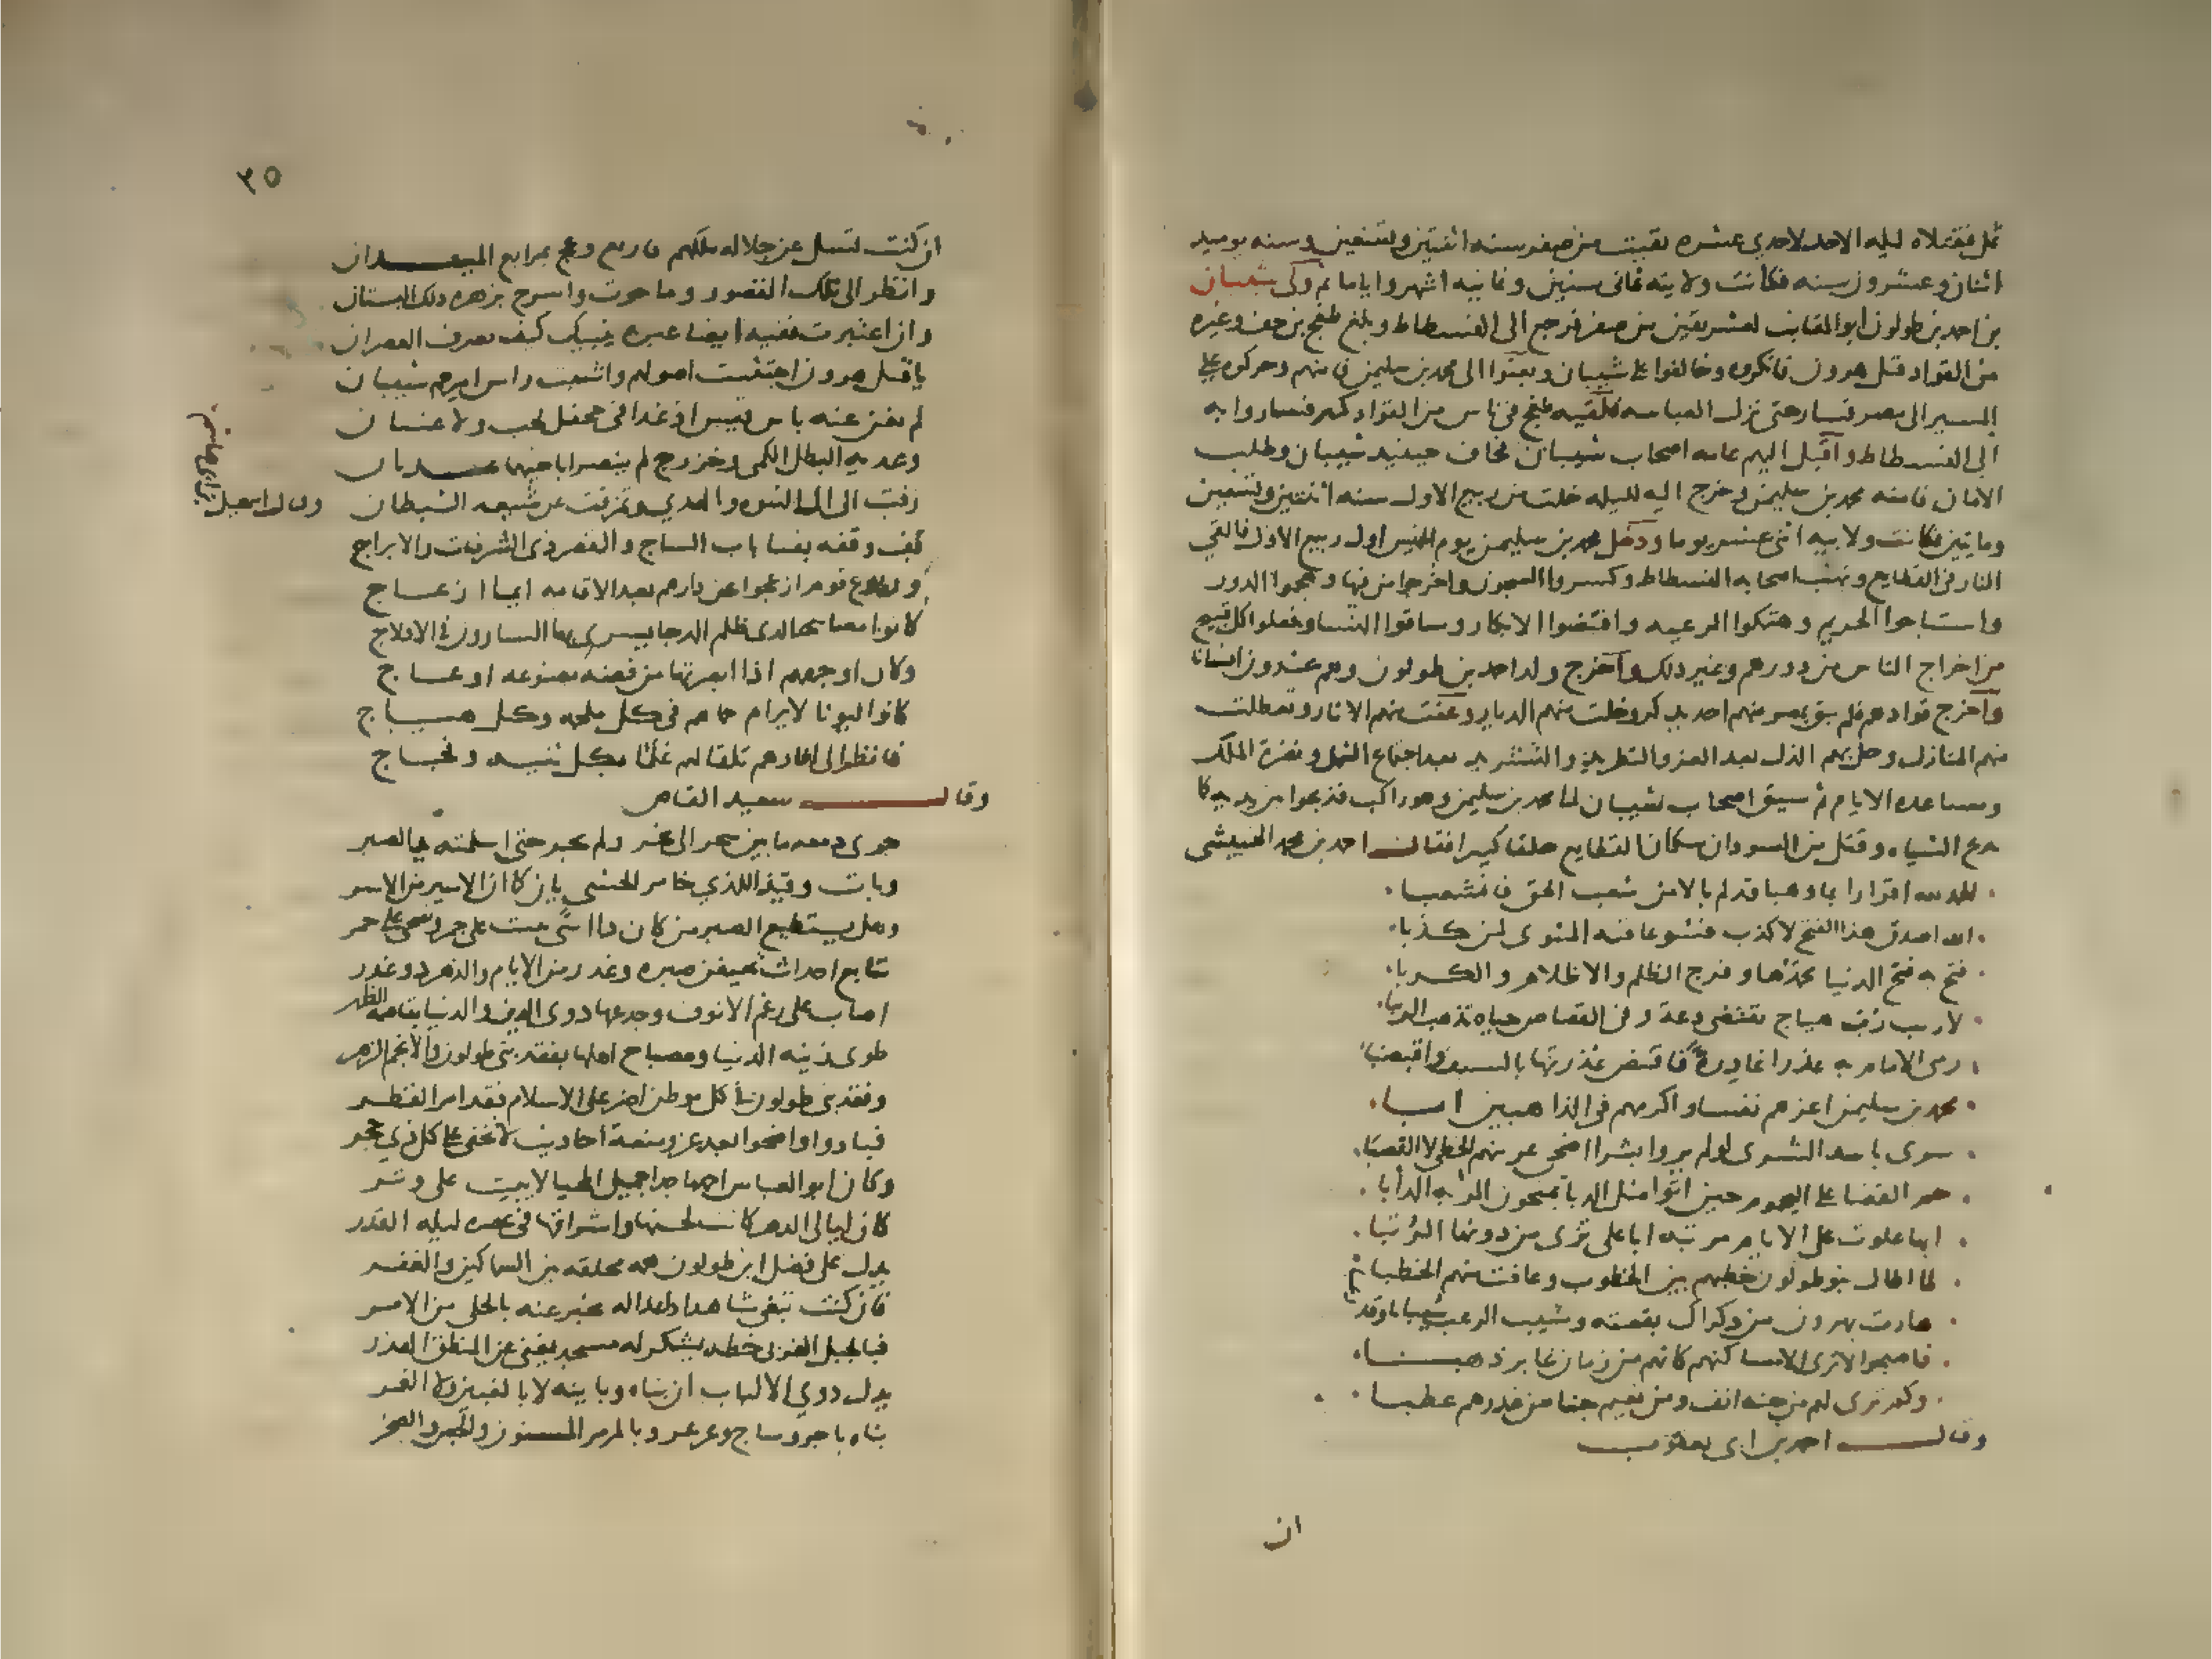 ثمل فقتلاه ليله الاحد لاحدي عشره بقيت من صفر سنه اثنتين وتسعين وسنه يوميد
اثنان وعشرون سنه فكانت ولايته ثماني سنين وثمانيه اشهر واياما ثم ولى شيبان
بن احمد بن طولون ابو المقانب لعشر بقين من صفر فرجع الى الفسطاط وبلغ طغج بن جف وغيره
من القواد قتل هرون فانكروه وخالفوا على شيبان وبعثوا الى محمد بن سليمن فامنهم وحركوه على
المسير الى مصر فسار حتى نزل العباسه فلقيه طغج في ناس من القواد كثير فساروا به
الى الفسطاط واقبل اليهم عامه اصحاب شيبان فخاف حينيد شيبان وطلب
الامان فامنه محمد بن سليمن وخرج اليه لليله خلت من ربيع الاول سنه اثنتين وتسعين
وماتين فكانت ولايته اثني عشر يوما ودخل محمد بن سليمن يوم الخميس اول ربيع الاول فالقي
النار في القطايع ونهب اصحابه الفسطاط وكسروا السجون واخرجوا من فيها وهجموا الدور
واستباحوا الحريم وهتكوا الرعيه وافتضوا الابكار وساقوا النسا وفعلوا كل قبيح
من اخراج الناس من دورهم وغير ذلك واخرج ولد احمد بن طولون وهم عشرون انسانا
واخرج قوادهم فلم يبق بمصر منهم احد يذكر وخلت منهم الديار وعفت منهم الاثار وتعطلت
منهم المنازل وحل بهم الذل بعد العز والتطريد والتشتيد بعد اجتماع الشمل ونضرة الملك
ومساعده الايام ثم سيق اصحاب شيبان الى محمد بن سليمن وهو راكب فذبحوا بين يديه كما
تذبح الشياه وقتل من السودان سكان القطايع خلقا كثيرا فقال احمد بن محمد الحبيشي
الحمد لله اقرارا بما وهبا قد لم بالامن شعب الحق فانشعبا
الله اصدق هذا الفتح لا كذب فسو عاقبه المثوى لمن كذبا
فتح به فتح الدنيا محمدها وفرج الظلم والاظلام والكربا
لا ريب رب هياج يقتضي دعة وفي القصاص حياه تذهب الريبا
رمى الامام به عذرا غادرة فاقتض عذرتها بالسيف واقتضبا
محمد بن سليمن اعزهم نفسا واكرمهم في الذاهبين ابا
سرى باسد الشرى لو لم يروا بشرا اضحى عرينهم الخطي لا القصبا
جم الفضا على اليحموم حين اتوا مثل الدبا يمحون الدابه الدابا
ايها علوت على الايام مرتبه ابا علي ترى من دونها الرتبا
لما اطال بنو طولون خطبهم بين الخطوب وعافت منهم الخطبا
هارت بهرون من ذكراك بقعته وشيب الرعب شيبانا وقد
فاصبحوا لا ترى الا مساكنهم كانهم من زمان غابر ذهبا
وكم ترى لهم من جنه انف ومن نعيم جنا من غدرهم عطبا
وقال احمد بن ابي يعقوب
ان
٣٥
ان كنت تسل عن جلاله ملكهم فاربع وعج بمرابع الميدان
وانظر الى تلك القصور وما حوت واسرح بزهره ذلك البستان
وان اعتبرت ففيه ايضا عبره ينبيك كيف تصرف العصران
يا قتل هرون اجتثثت اصولهم واشبت راس اميرهم شيبان
لم يغن عنه باس قيس اذ غدا في جحفل لجب ولا غسان
وعديه البطل الكمى وخزرج لم ينصرا باخيهما عدنان
زفت الى ال النبوه والهدي وتمزقت عن شيعه الشيطان
وقال اسمعيل
بن ابي هاشم
قف وقفه بفنا باب الساج والقصر ذي الشرفات والابراج
وربوع قوم ازعجوا عن دارهم بعد الاقامه ايما ازعاج
كانوا مصابيحا لدى ظلم الدجا يسرى بها السارون في الادلاج
وكان اوجههم اذا ابصرتها من فضه مصنوعه او عاج
كانوا ليوثا لا يرام حماهم في كل ملحمه وكل هياج
فانظر الى اثارهم تلقى لهم علما بكل ثنيه وفجاج
وقال سعيد القاص
جرى دمعه ما بين سحر الى نحر ولم يجر حتى اسلمته يد الصبر
وبات وقيذا للذي خامر الحشى يان كما ان الاسير من الاسر
وهل يستطيع الصبر من كان ذا اسى يبيت على جمر ويضحى على جمر
تتابع احداث تحيفن صبره وغدر من الايام والدهر ذو غدر
اصاب على رغم الانوف وجدعها ذوى الدين والدنيا بقاصمه الظهر
طوى زينه الدنيا ومصباح اهلها بفقد بني طولون والانجم الزهر
وفقد بني طولون في كل موطن امر على الاسلام فقدا من القطر
فبادوا واضحوا بعد عز ومنعة احاديث لا تخفى على كل ذي حجر
وكان ابو العباس احمد ماجدا جميل المحيا لا يبيت على وتر
كان ليالى الدهر كانت لحسنها واشراقها في عصره ليله القدر
يدل على فضل ابن طولون همه محلقه بين السماكين والغفر
فان كنت تبغى شاهدا ذا عداله يخبر عنه بالجلى من الامر
فبالجبل الغربى خطه يشكر له مسجد يغنى عن المنطق الهذر
يدل ذوي الالباب ان بناه وبانيه لا بالضنين ولا الغمر
بناه باجر وساج وعرعر وبالمرمر المسنون والجص والصخر